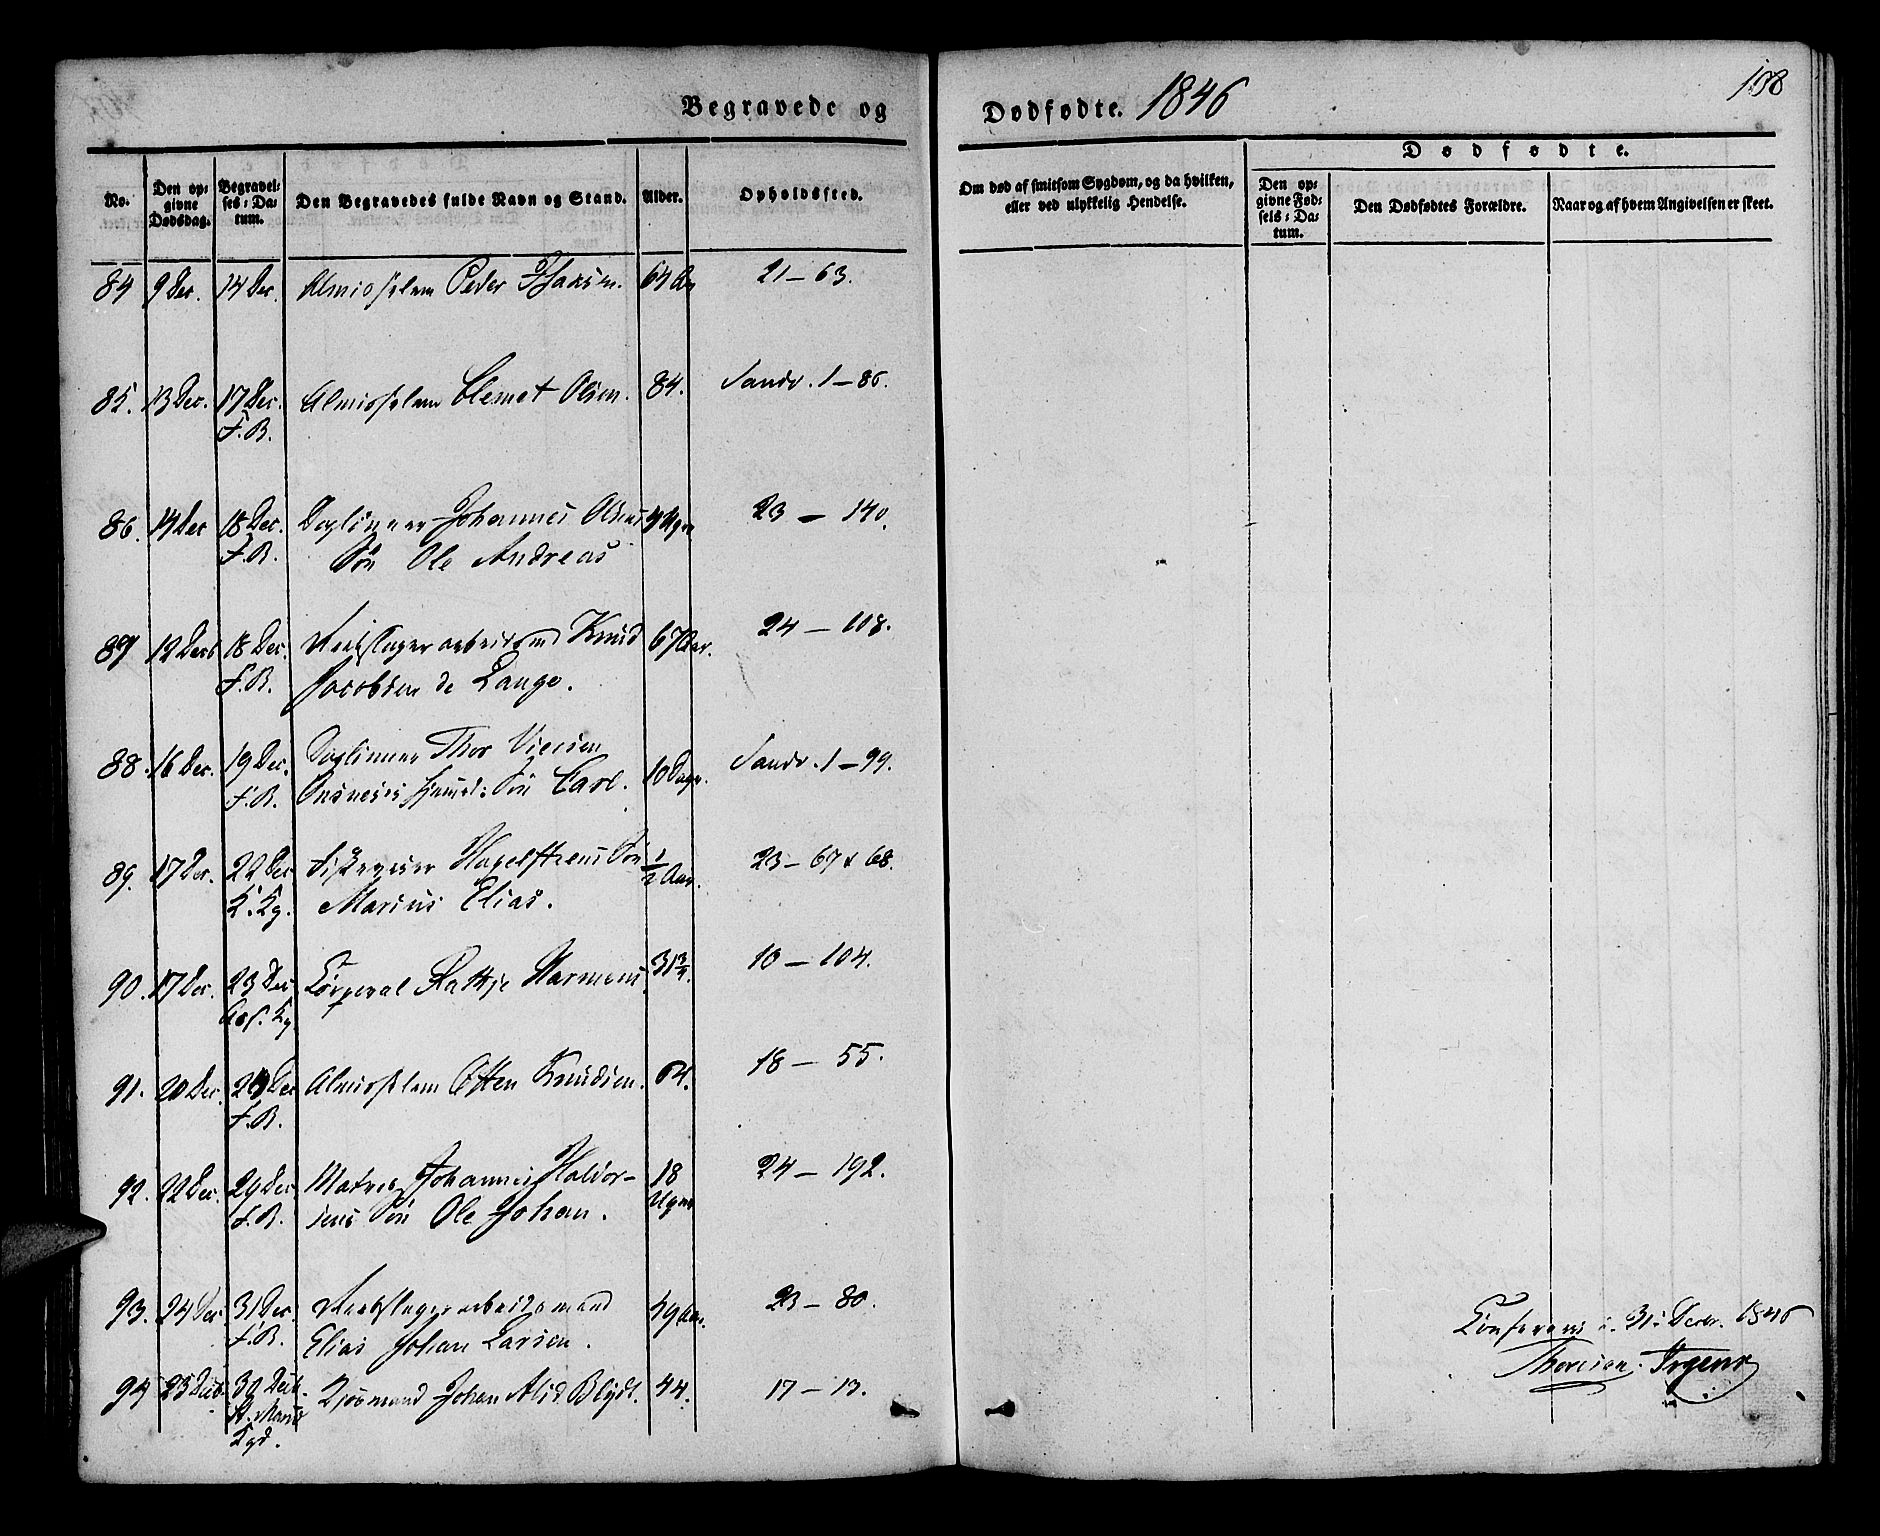 Begravede og
Dødfødte. 1846
108
No.
Den op-
givne
Dødsdag.
Begravel-
ses-Da-
tum.
Den Begravedes fulde Navn og Stand.
Alder.
Opholdssted.
Om død af smitsom Sygdom, og da hvilken,
eller ved ulykkelig Hendelse.
Dødfødte.
Den op-
givne Fød-
sels-Da-
tum.
Den Dødfødtes Forældre.
Naar og af hvem Angivelsen er skeet.
84 9 Dec. 14 Dec. Almisselem Peder 64 Aar 21 – 63.
85. 13 Dec. 17 Dec. Almisselem Clemet Olsen. 84. Sandv. 1 – 86.
F.B.
86. 14 Dec 18 Dec. Daglønner Johannes Olsens 4 Uger 23 – 140.
F.B. Søn Ole Andreas
87 12 Decb 18 Dec. Reebslagerarbeidsmd Knud 67 Aar. 24 – 108.
F.B. Jacobsen de Lange.
88. 16 Dec. 19 Dec. Daglønner Thor 10 Dage. Sandv. 1 – 99.
F.B. Søn Carl.
89. 17 Dec. 22 Dec Hagelsteens Søn 1/2 Aar. 23 – 67 & 68.
K. Kg. Marius Elias.
90. 17 Dec. 23 Dec Corporal Rattje Harmens 31 3/4. 10 – 104.
Kg
91. 20 Dec. 26 Dec Almisselem Otten Knudsen. 64. 18 – 55.
F.B.
92. 22 Dec. 29 Dec Matros Johannes Haldor- 18 24 – 192.
F.B. sens Søn Ole Johan. Uger
93. 24 Dec 31 Dec. Reebslagerarbeidsmand 49 Aar. 23 – 80.
F.B. Elias Johan Larsen.
94 25 Decb 30 Decb. Johan Alid Blydt. 44. 17 – 13.
St. Marie
Kgd.
Confereres d. 31 Decbr. 1846
Thoresen. Irgens